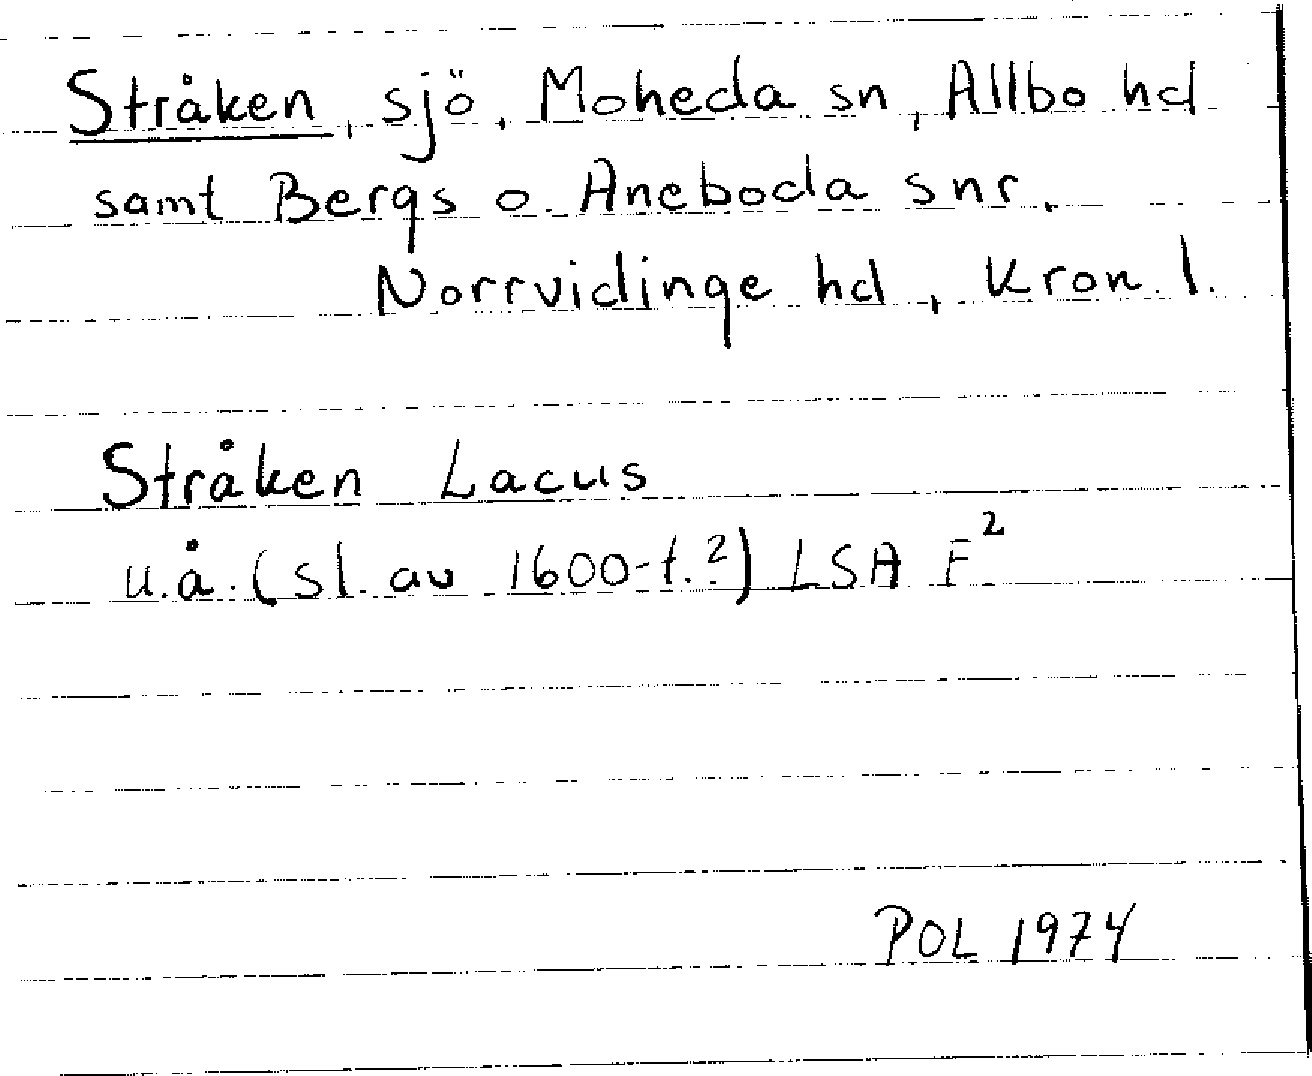 Stråken, sjö, Moheda sn, Allbo hd
samt Bergs o. Aneboda snr,
Norrvidinge hd, Kron. l.
Stråken Lacus
u.å. (sl. av 1600-t.?) LSA F²
POL 1974